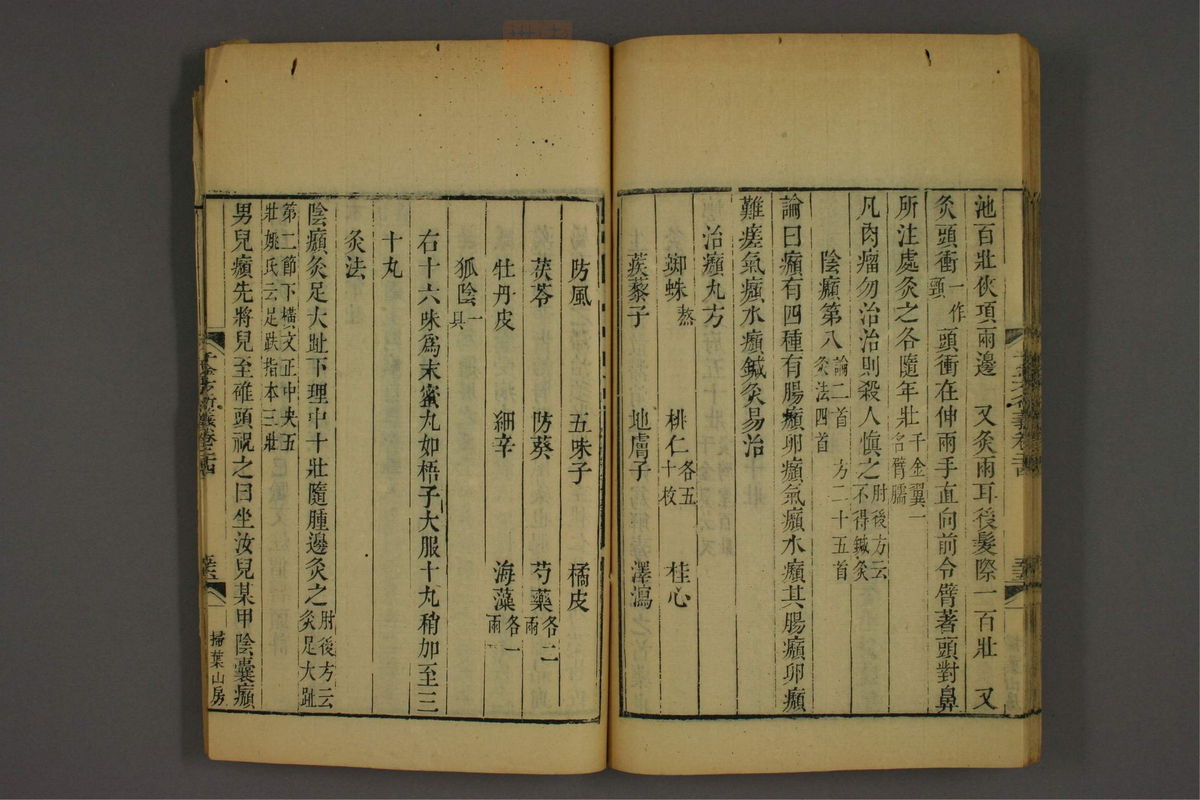 池百壯俠項兩邊 又灸兩耳後髮際一百壯 又
灸頭衝一作頸頭衝在伸兩手直向前令臂著頭對鼻
所注處灸之各隨年壯千金翼一名臂臑
凡肉瘤勿治治則殺人慎之肘後方云不得鍼灸
陰㿗第八論二首 方二十五首 灸法四首
論曰㿗有四種有腸㿗卵㿗氣㿗水㿗其腸㿗卵㿗
難瘥氣㿗水㿗鍼灸易治
治㿗丸方
蜘蛛熬 桃仁各五十枚 桂心
蒺藜子 地膚子 澤瀉
防風 五味子 橘皮
茯苓 防葵 芍藥各二兩
牡丹皮 細辛 海藻各一兩
狐陰一具
右十六味爲末蜜丸如梧子大服十丸稍加至三
十丸
灸法
陰㿗灸足大趾下理中十壯隨腫邊灸之肘後方云灸足大趾
第二節下橫文正中央五壯姚氏云足趺指本三壯
男兒㿗先將兒至碓頭祝之曰坐汝兒某甲陰囊㿗
掃葉山房